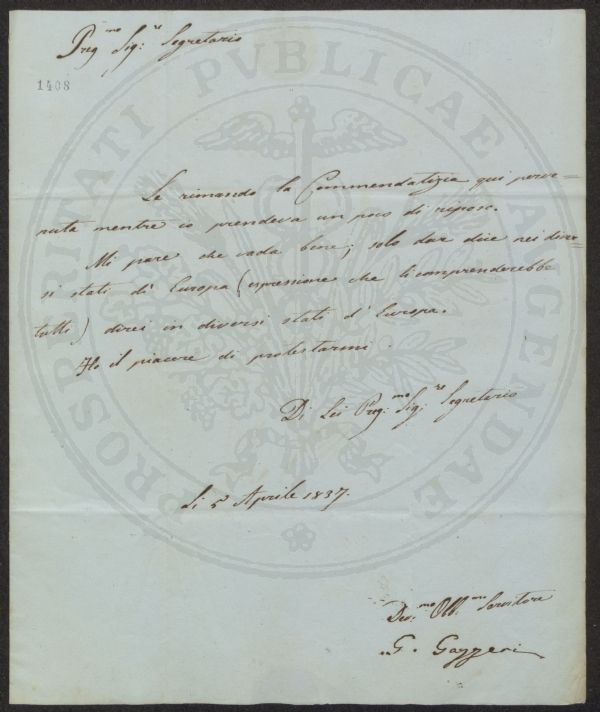 Preg.mo Sig.re Segretario
1408
Le rimando la Commendatizia qui perve=
nuta mentre io prendeva un poco di riposo.
Mi pare che vada bene; solo dove dice nei diver=
si stati d'Europa (espressione che li comprenderebbe
tutti) direi in diversi stati d'Europa.
Ho il piacere di protestarmi
Di Lei Preg.mo Sig.re Segretario
Li 5 Aprile 1837.
Dev.mo Obb.mo Servitore
G. Gazzeri
PROSPERITATI PVBLICAE AVGENDAE